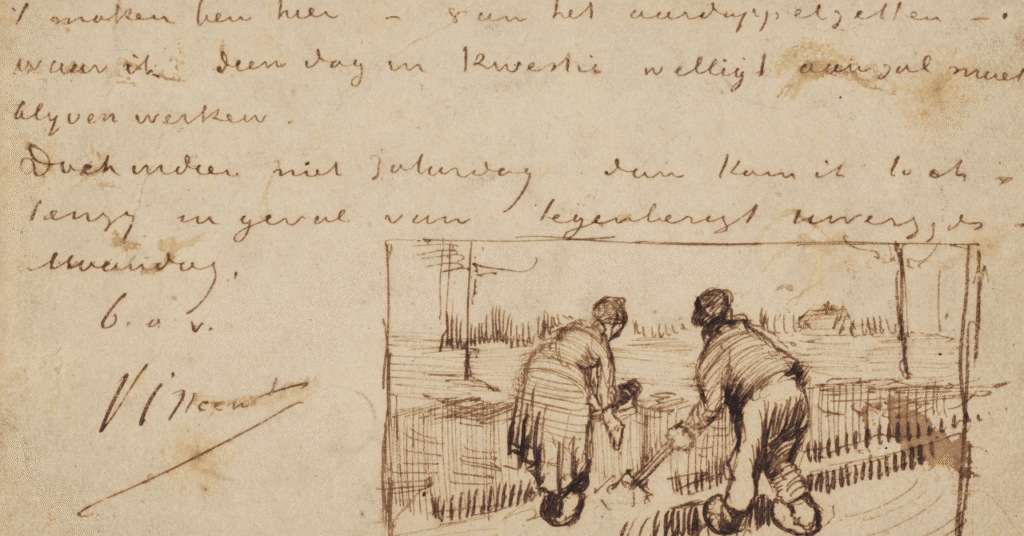 't maken ben hier – & van het aardappelzetten –.
waar ik dien dag in kwestie welligt aan zal moet
blyven werken.
Doch indien niet Saturdag dan kom ik toch –
tenzy in geval van tegenberigt Uwerzyds –
Maandag.
b. a. v.
Vincent